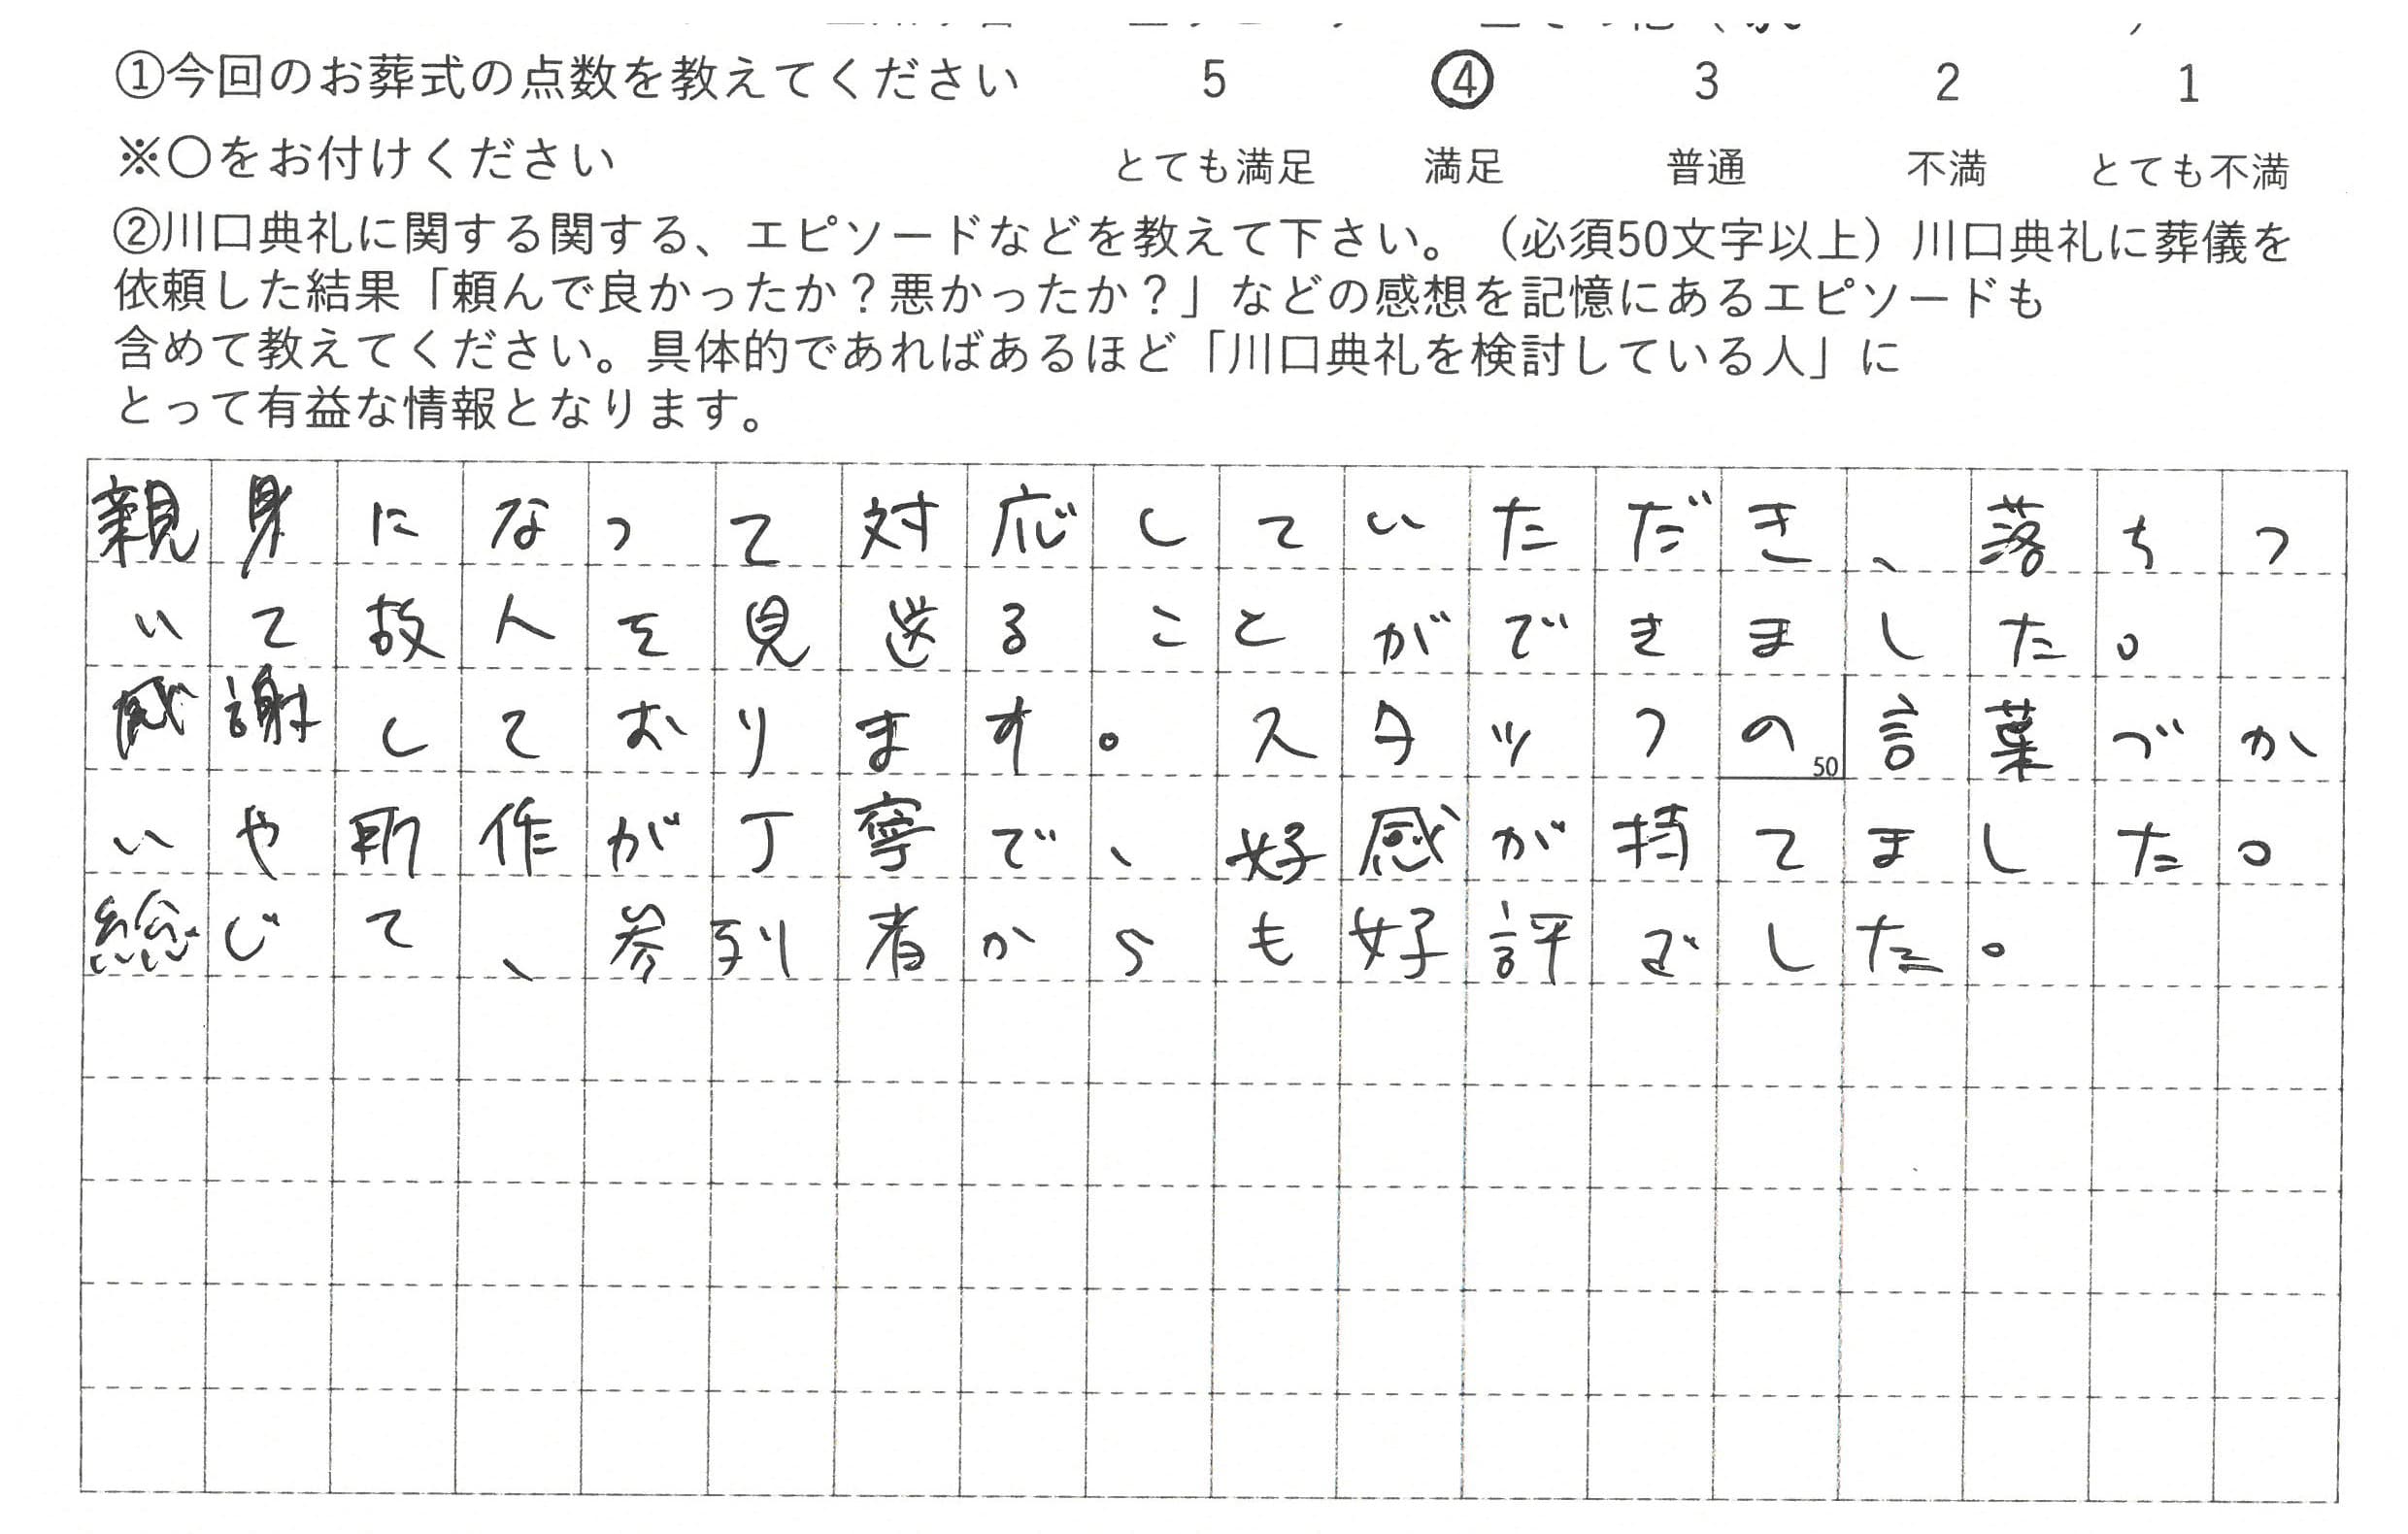 ①今回のお葬式の点数を教えてください 5 ④ 3 2 1
※○をお付けください とても満足 満足 普通 不満 とても不満
②川口典礼に関する関する、エピソードなどを教えて下さい。(必須50文字以上)川口典礼に葬儀を
依頼した結果「頼んで良かったか?悪かったか?」などの感想を記憶にあるエピソードも
含めて教えてください。具体的であればあるほど「川口典礼を検討している人」に
とって有益な情報となります。
親身になって対応していただき、落ちつ
いて故人を見送ることができました。
感謝しております。スタッフの言葉づか
50
いや所作が丁寧で、好感が持てました。
総じて、参列者からも好評でした。